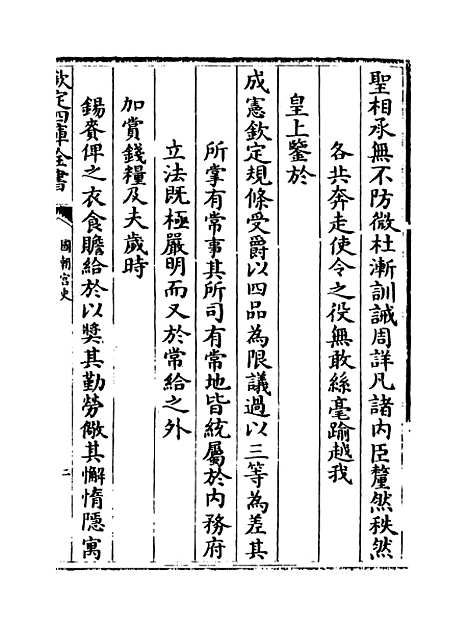 聖相承無不防微杜漸訓誡周詳凡諸内臣釐然秩然
各共奔走使令之役無敢絲毫踰越我
皇上鑒於
成憲欽定規條受爵以四品為限議過以三等為差其
所掌有常事其所司有常地皆統屬於内務府
立法既極嚴明而又於常給之外
加賞錢糧及夫歲時
錫賚俾之衣食贍給於以奬其勤勞儆其懈惰隱寓
欽定四庫全書
國朝宫史
二